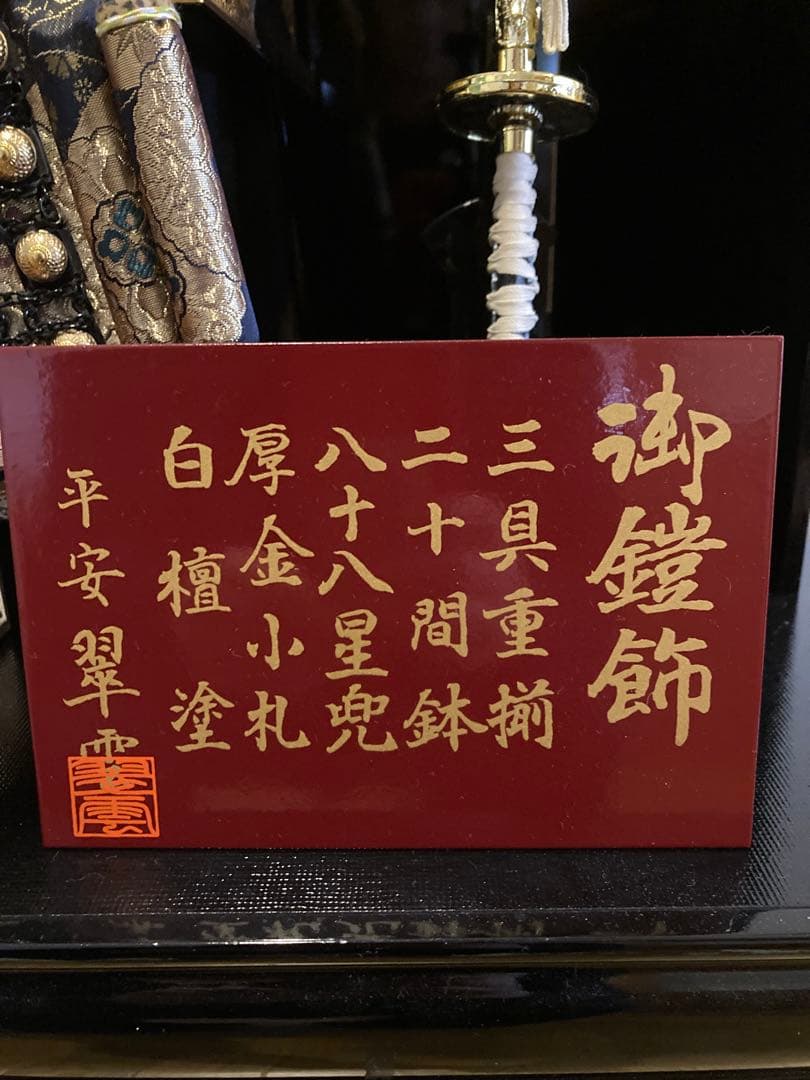 御鎧飾
三具重揃
二十間鉢
八十八星兜
厚金小札
白檀塗
平安翠雲
翠雲